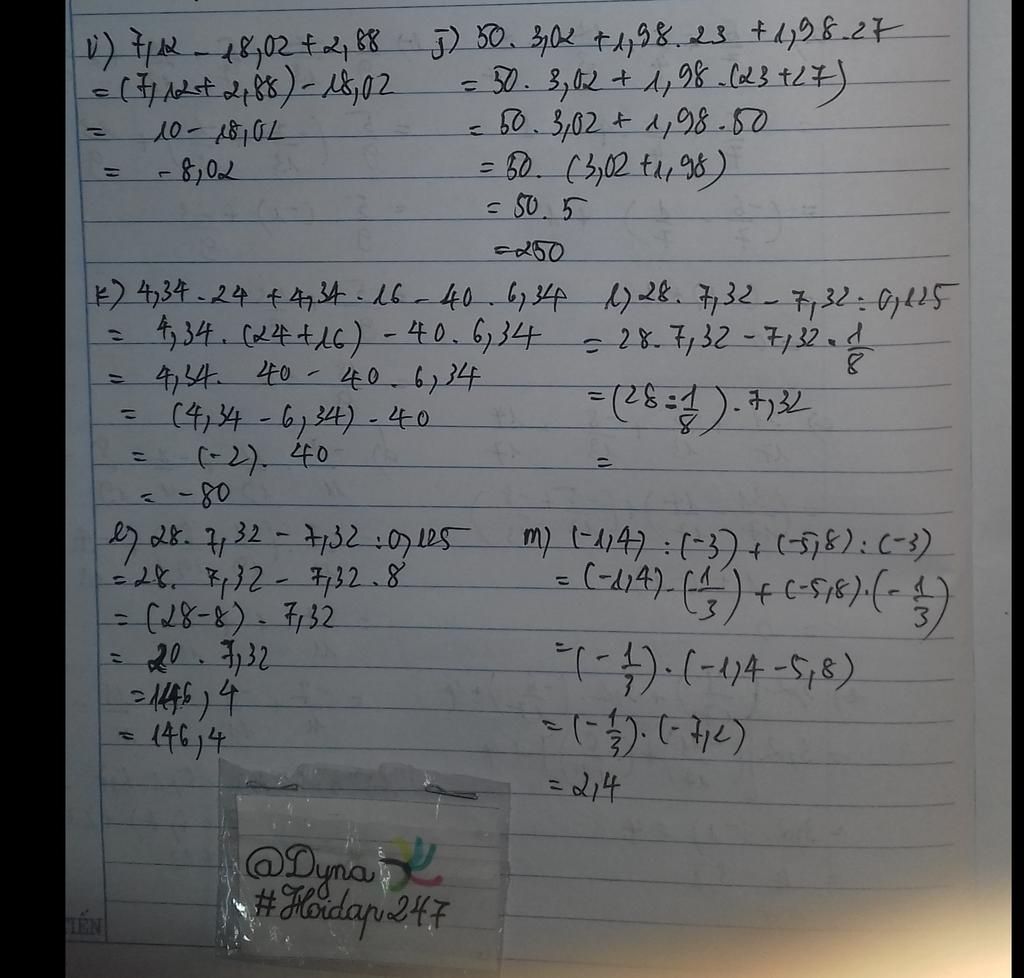 i) 7,12 - 18,02 + 2,88
= (7,12 + 2,88) - 18,02
= 10 - 18,02
= -8,02
j) 50 . 3,02 + 1,98 . 23 + 1,98 . 27
= 50 . 3,02 + 1,98 . (23 + 27)
= 50 . 3,02 + 1,98 . 50
= 50 . (3,02 + 1,98)
= 50 . 5
= 250
k) 4,34 . 24 + 4,34 . 16 - 40 . 6,34
= 4,34 . (24 + 16) - 40 . 6,34
= 4,34 . 40 - 40 . 6,34
= (4,34 - 6,34) . 40
= (-2) . 40
= -80
l) 28 . 7,32 - 7,32 : 0,125
= 28 . 7,32 - 7,32 . 1/8
= (28 = 1/8) . 7,32
=
l) 28 . 7,32 - 7,32 : 0,125
= 28 . 7,32 - 7,32 . 8
= (28 - 8) . 7,32
= 20 . 7,32
= 146,4
= 146,4
m) (-1,4) : (-3) + (-5,8) : (-3)
= (-1,4) . (-1/3) + (-5,8) . (-1/3)
= (-1/3) . (-1,4 - 5,8)
= (-1/3) . (-7,2)
= 2,4
@Dyna
#Hoidap247
TIẾN